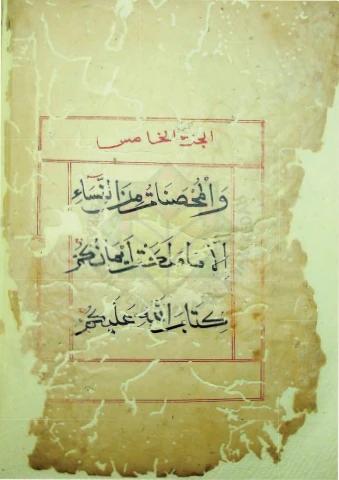 الجزء الخامس
وَالْمُحْصَنَاتُ مِنَ النِّسَاءِ
إِلَّا مَا مَلَكَتْ أَيْمَانُكُمْ
كِتَابَ اللَّهِ عَلَيْكُمْ